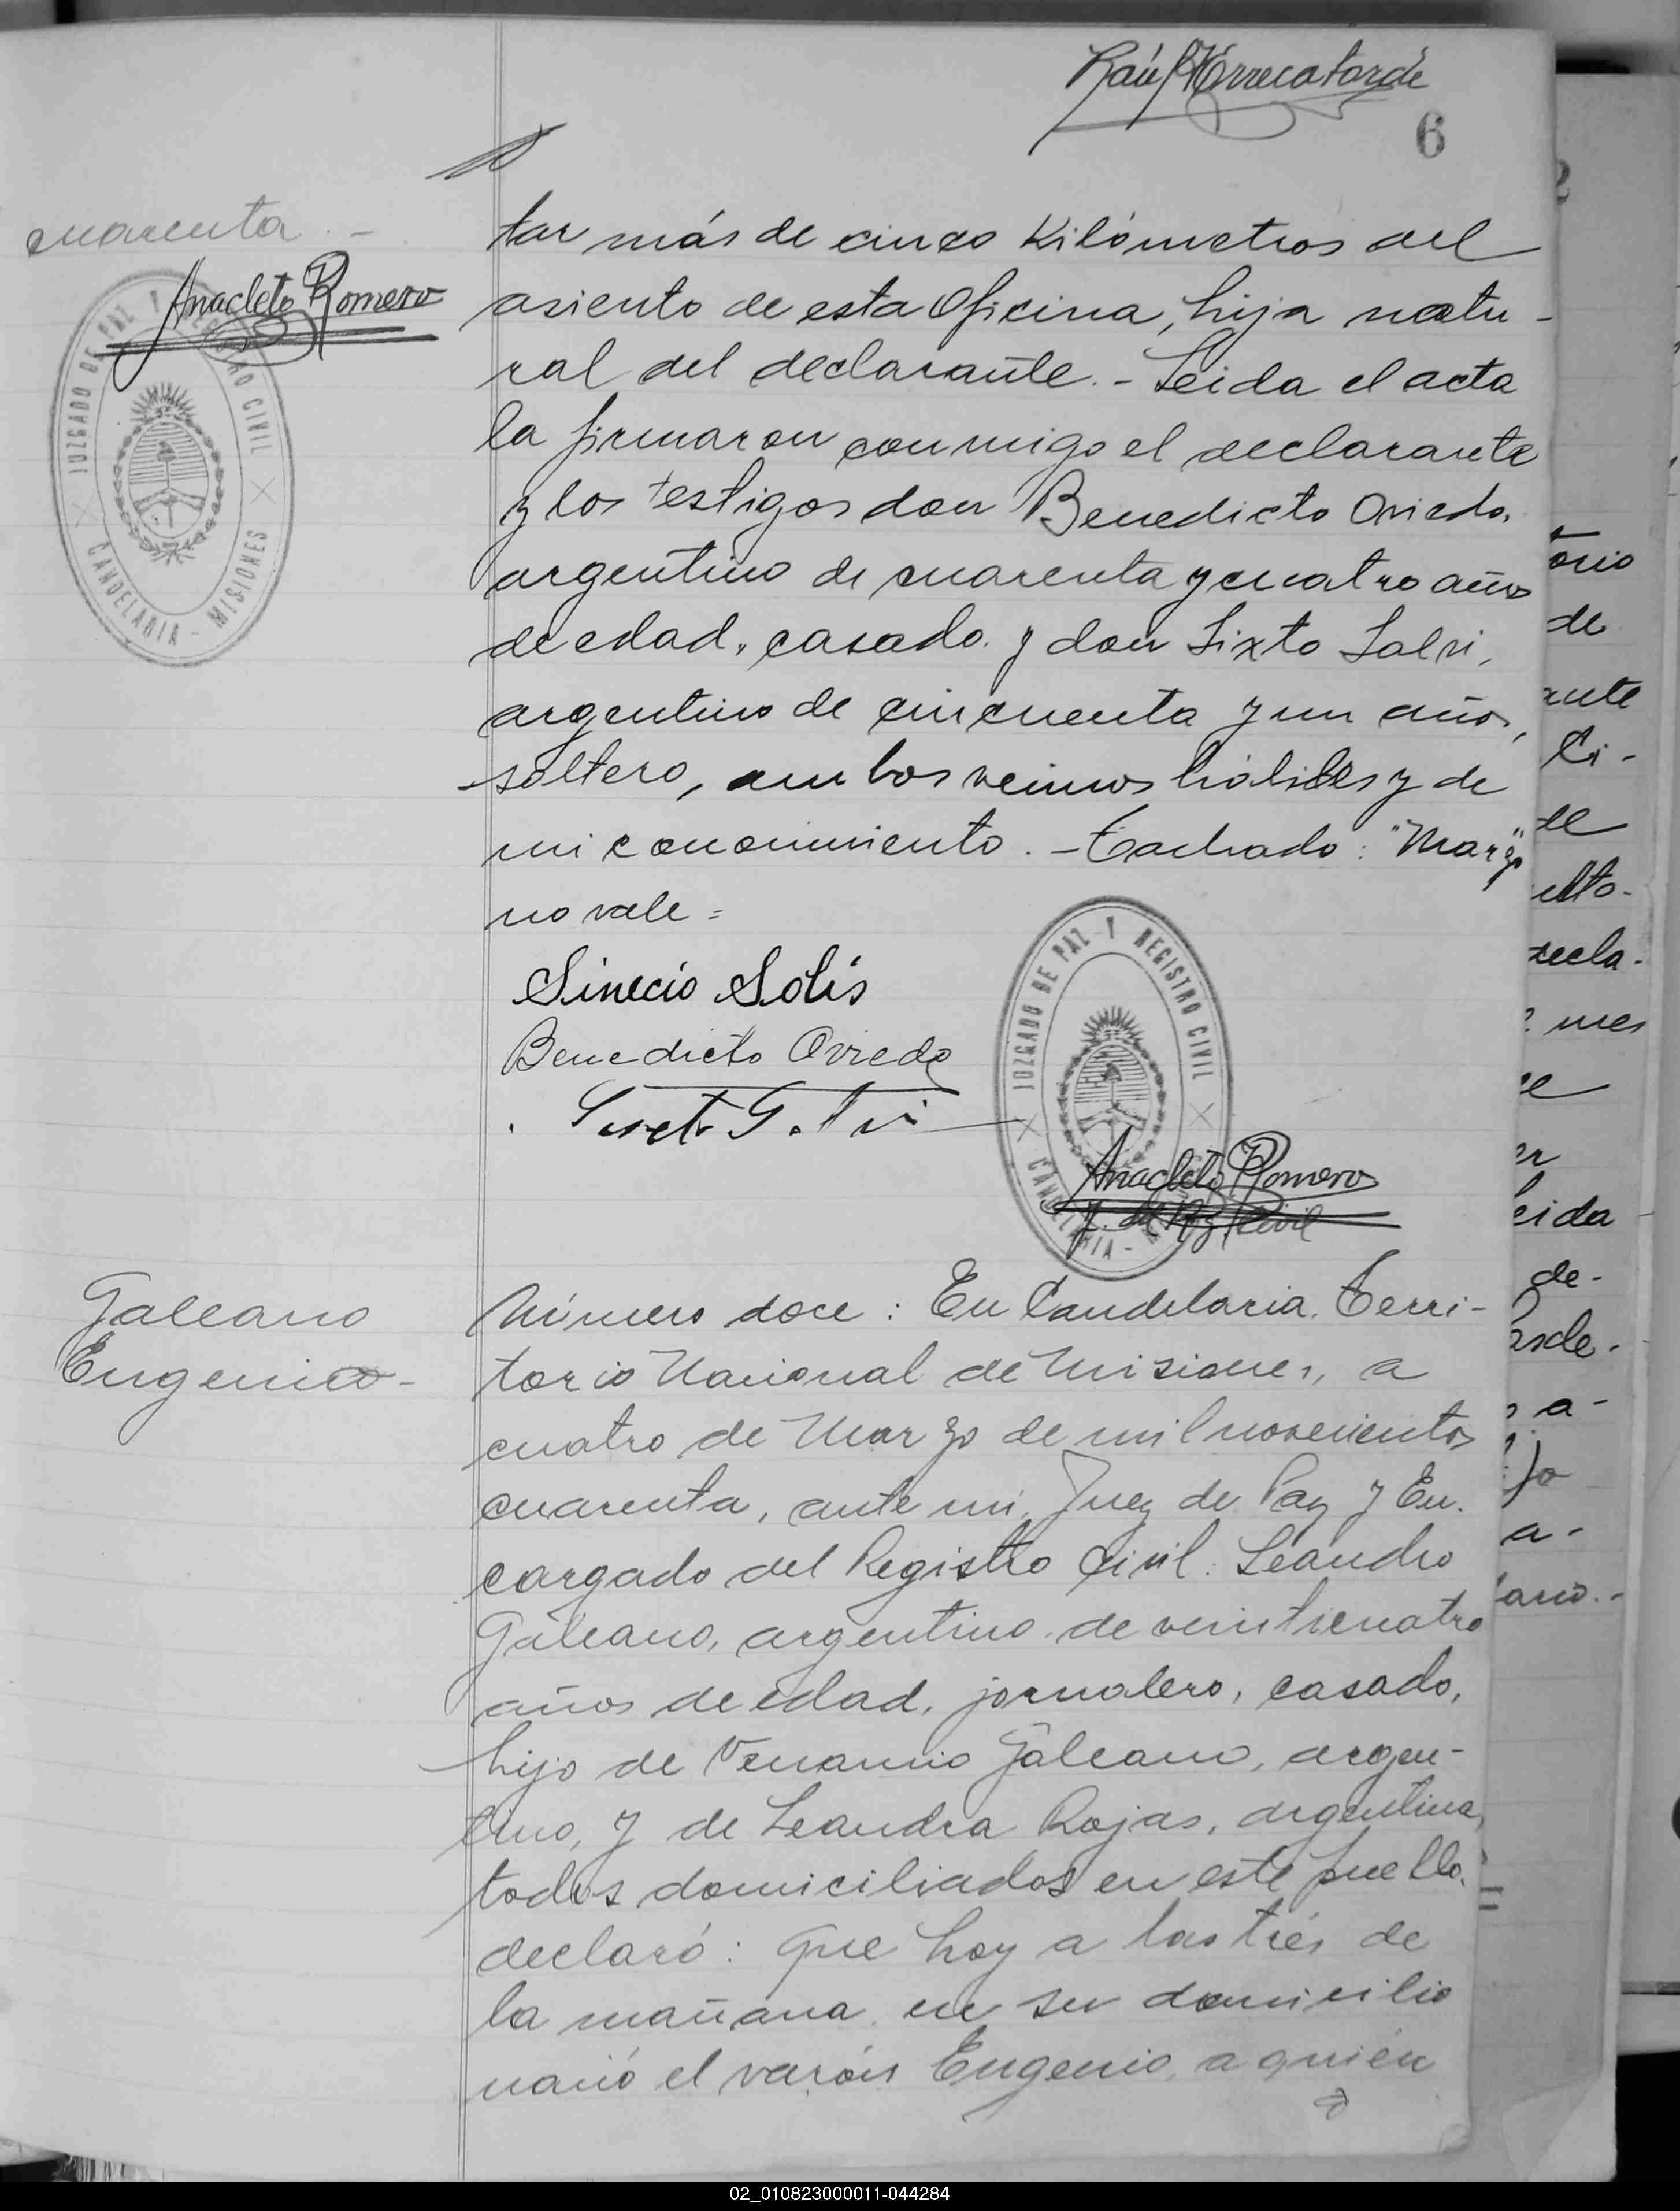 6
cuarenta.-
Anacleto Romero
JUZGADO DE PAZ Y REGISTRO CIVIL
CANDELARIA - MISIONES
tar más de cinco Kilómetros del
asiento de esta Oficina, hija natu-
ral del declarante.- Leida el acta
la firmaron conmigo el declarante
y los testigos don Benedicto Oviedo,
argentino de cuarenta y cuatro años
de edad, casado y don Sixto
argentino de cincuenta y un años,
soltero, ambos vecinos hábiles y de
mi conocimiento.- Tachado: "Marzo"
no vale=
Sinecio Solis
Benedicto Oviedo
JUZGADO DE PAZ Y REGISTRO CIVIL
CANDELARIA -
Anacleto Romero
J. del Reg. Civil
Galeano
Eugenio-
Número doce: En Candelaria, Terri-
torio Nacional de Misiones, a
cuatro de Marzo de mil novecientos
cuarenta, ante mi, Juez de Paz y En-
cargado del Registro Civil: Leandro
Galeano, argentino de veinticuatro
años de edad, jornalero, casado,
hijo de Venancio Galeano, argen-
tino, y de Leandra Rojas, argentina,
todos domiciliados en este pueblo,
declaró: que hoy a las trés de
la mañana en su domicilio
nació el varón Eugenio, a quién
torio
de
ante
Ci-
de
ulto-
decla-
mes
er
leida
de-
a-
a-
ario.-
02_010823000011-044284